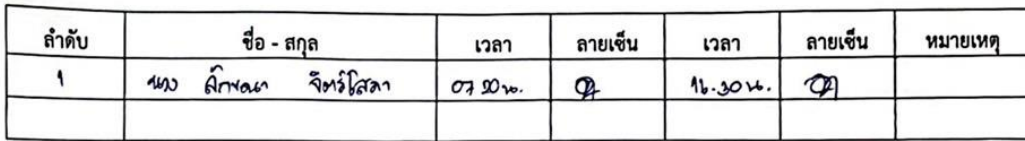 ลำดับ ชื่อ - สกุล เวลา ลายเซ็น เวลา ลายเซ็น หมายเหตุ
1 นาง ลักขณา จิตร์โสภา 07.20น. 16.30น.